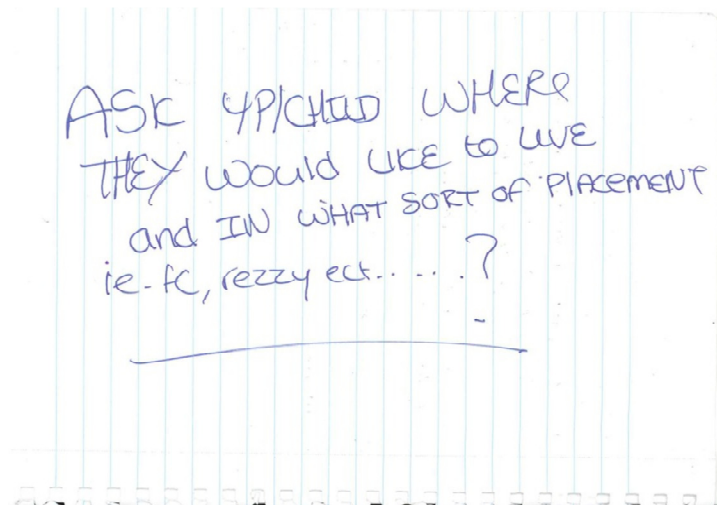 ASK YP/CHILD WHERE
THEY WOULD LIKE to LIVE
and IN WHAT SORT OF PlACEMENT
ie-fc, rezzy ect......?